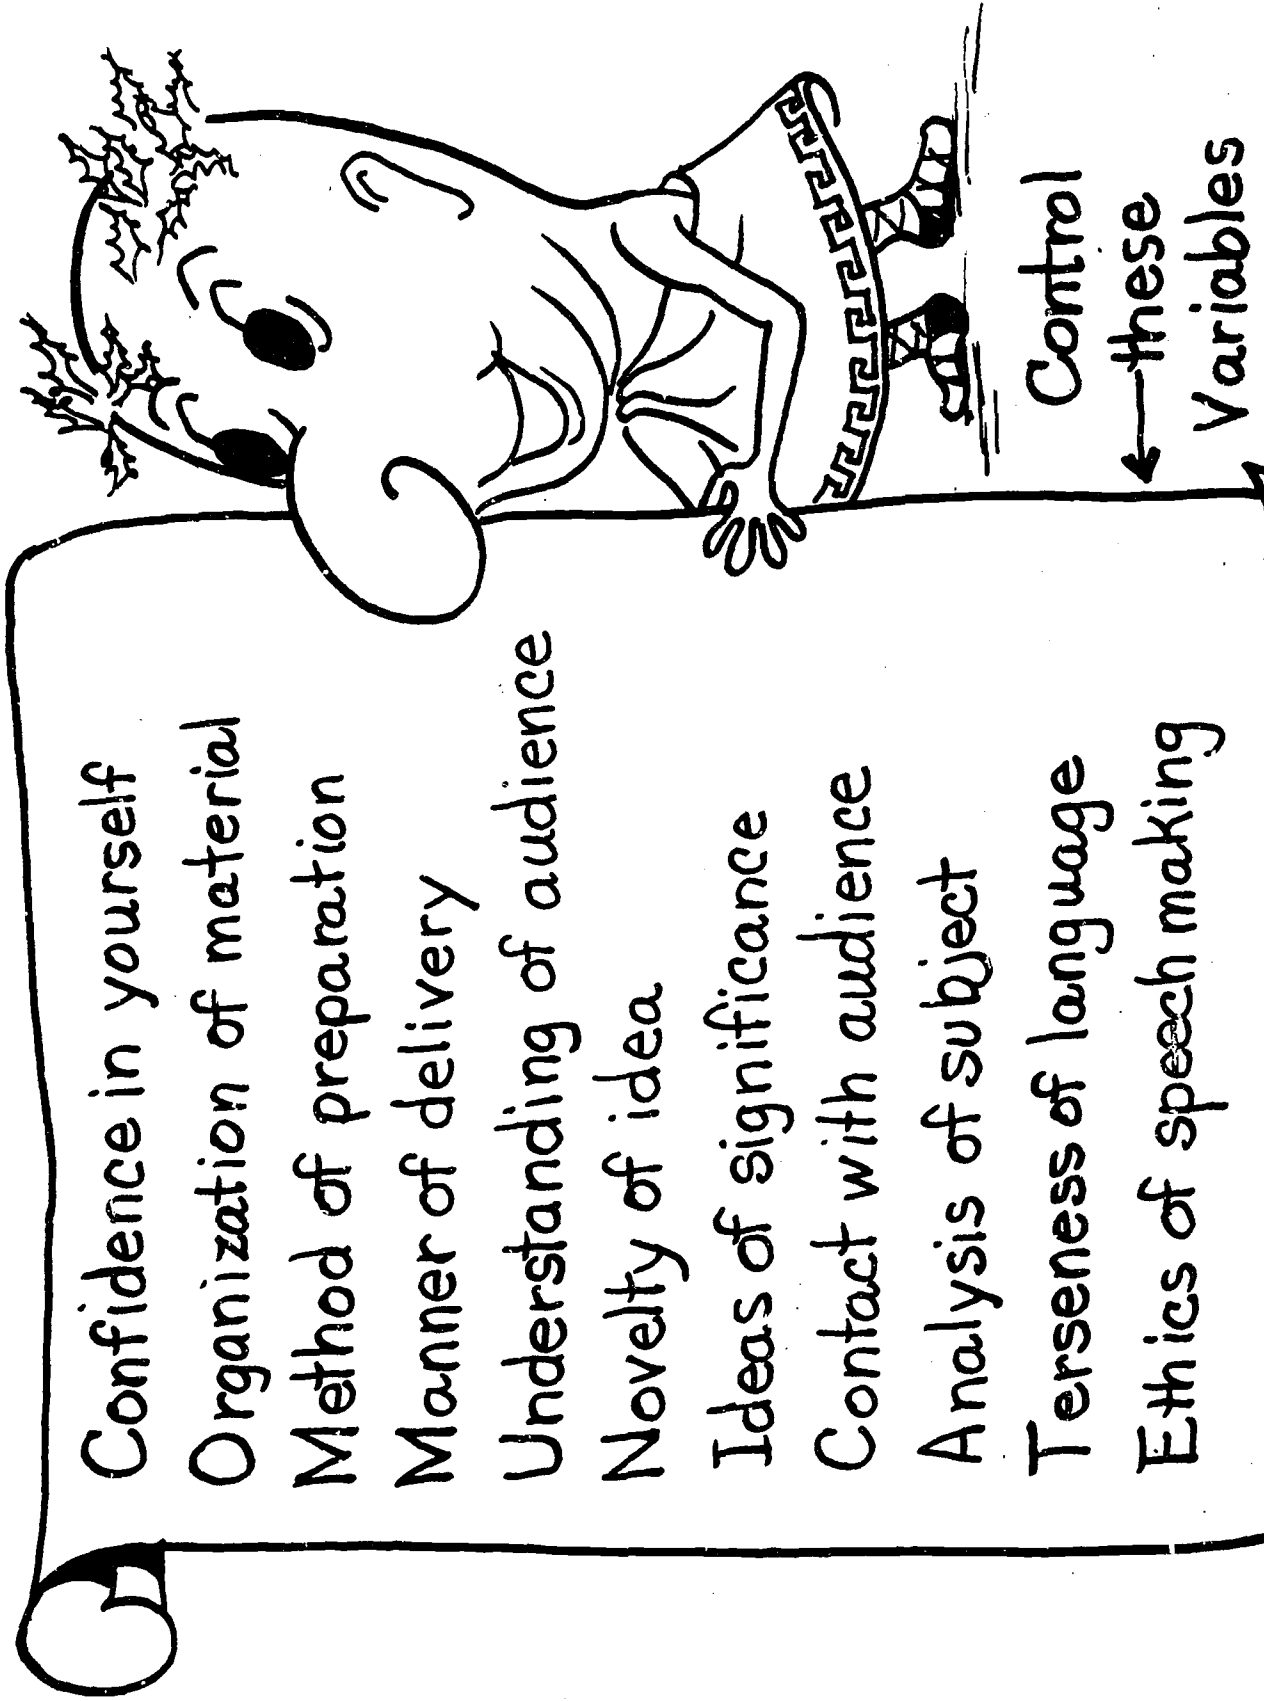 Confidence in yourself
Organization of material
Method of preparation
Manner of delivery
Understanding of audience
Novelty of idea
Ideas of significance
Contact with audience
Analysis of subject
Terseness of language
Ethics of speech making
Control
these
Variables